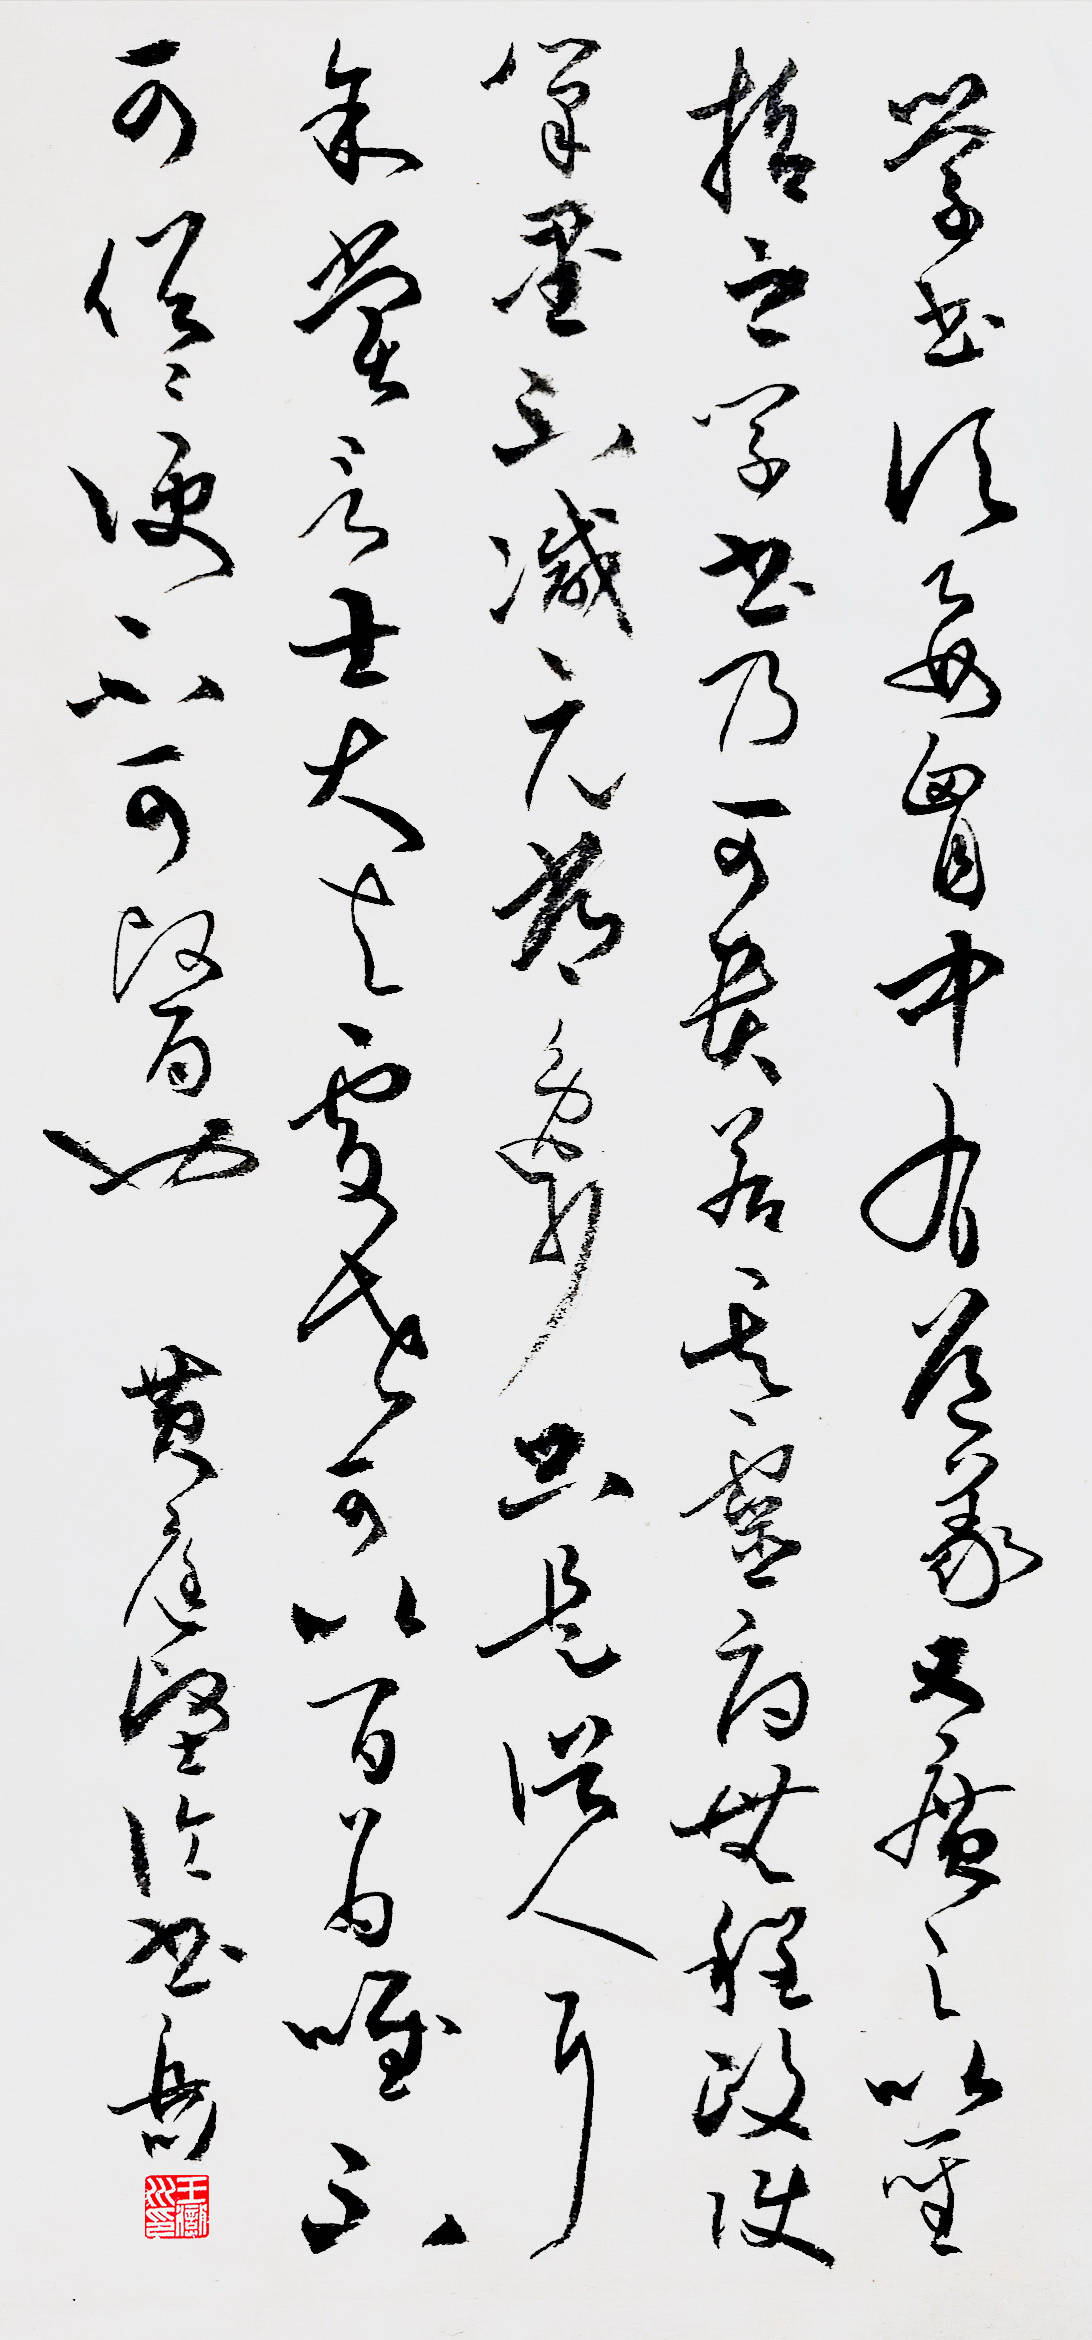 學書須要胷中有道義又廣之以聖
哲之學書乃可貴若其靈府無程政使
筆墨不減元常逸少只是俗人耳
余嘗言士大夫處世可以百為唯不
可俗〻便不可醫也 黃庭堅論書